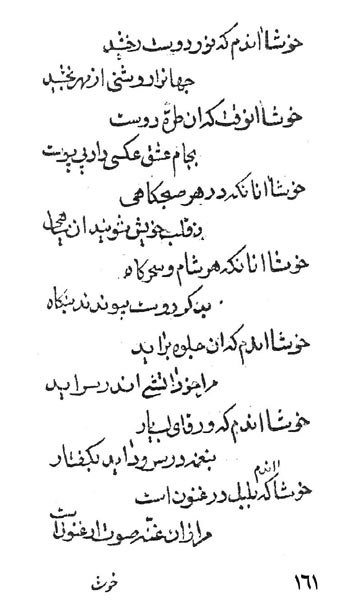 خوشا اندم که نور دوست رخشید
جهانرا روشنی از مهر بخشید
خوشا انوقت که ان طرّه دوست
بجام عشق عکسی دارد
خوشا انانکه در هر صبحکاهی
ز قلب خویش شویند ان سیاهی
خوشا انانکه هر شام و سحرکاه
بذکر دوست پیوندند
خوشا اندم که ان جلوه براید
مرا چون اتشی اندر سر اید
خوشا اندم که ورقای
بنغمه در سرود اید بکفتار
خوشا اندم که بلبل در غنون است
مرا زان غنّه صوت ارغنون است
١٦١
خوش